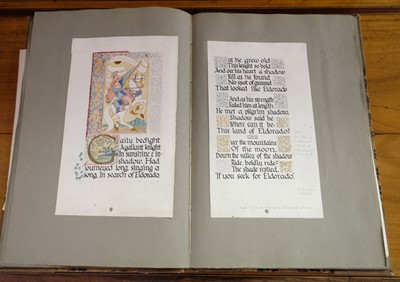 Gaily bedight
A gallant knight
In sunshine & in
shadow, Had
journeyed long, singing a
song, In search of Eldorado
But he grew old
This knight so bold
And o'er his heart a shadow
Fell as he found
No spot of ground
That looked like Eldorado
And as his strength
Failed him at length
He met a pilgrim shadow,
Shadow, said he
Where can it be-
This land of Eldorado?
Over the mountains
Of the moon,
Down the valley of the shadow
Ride, boldly ride
The shade replied,
If you seek for Eldorado!